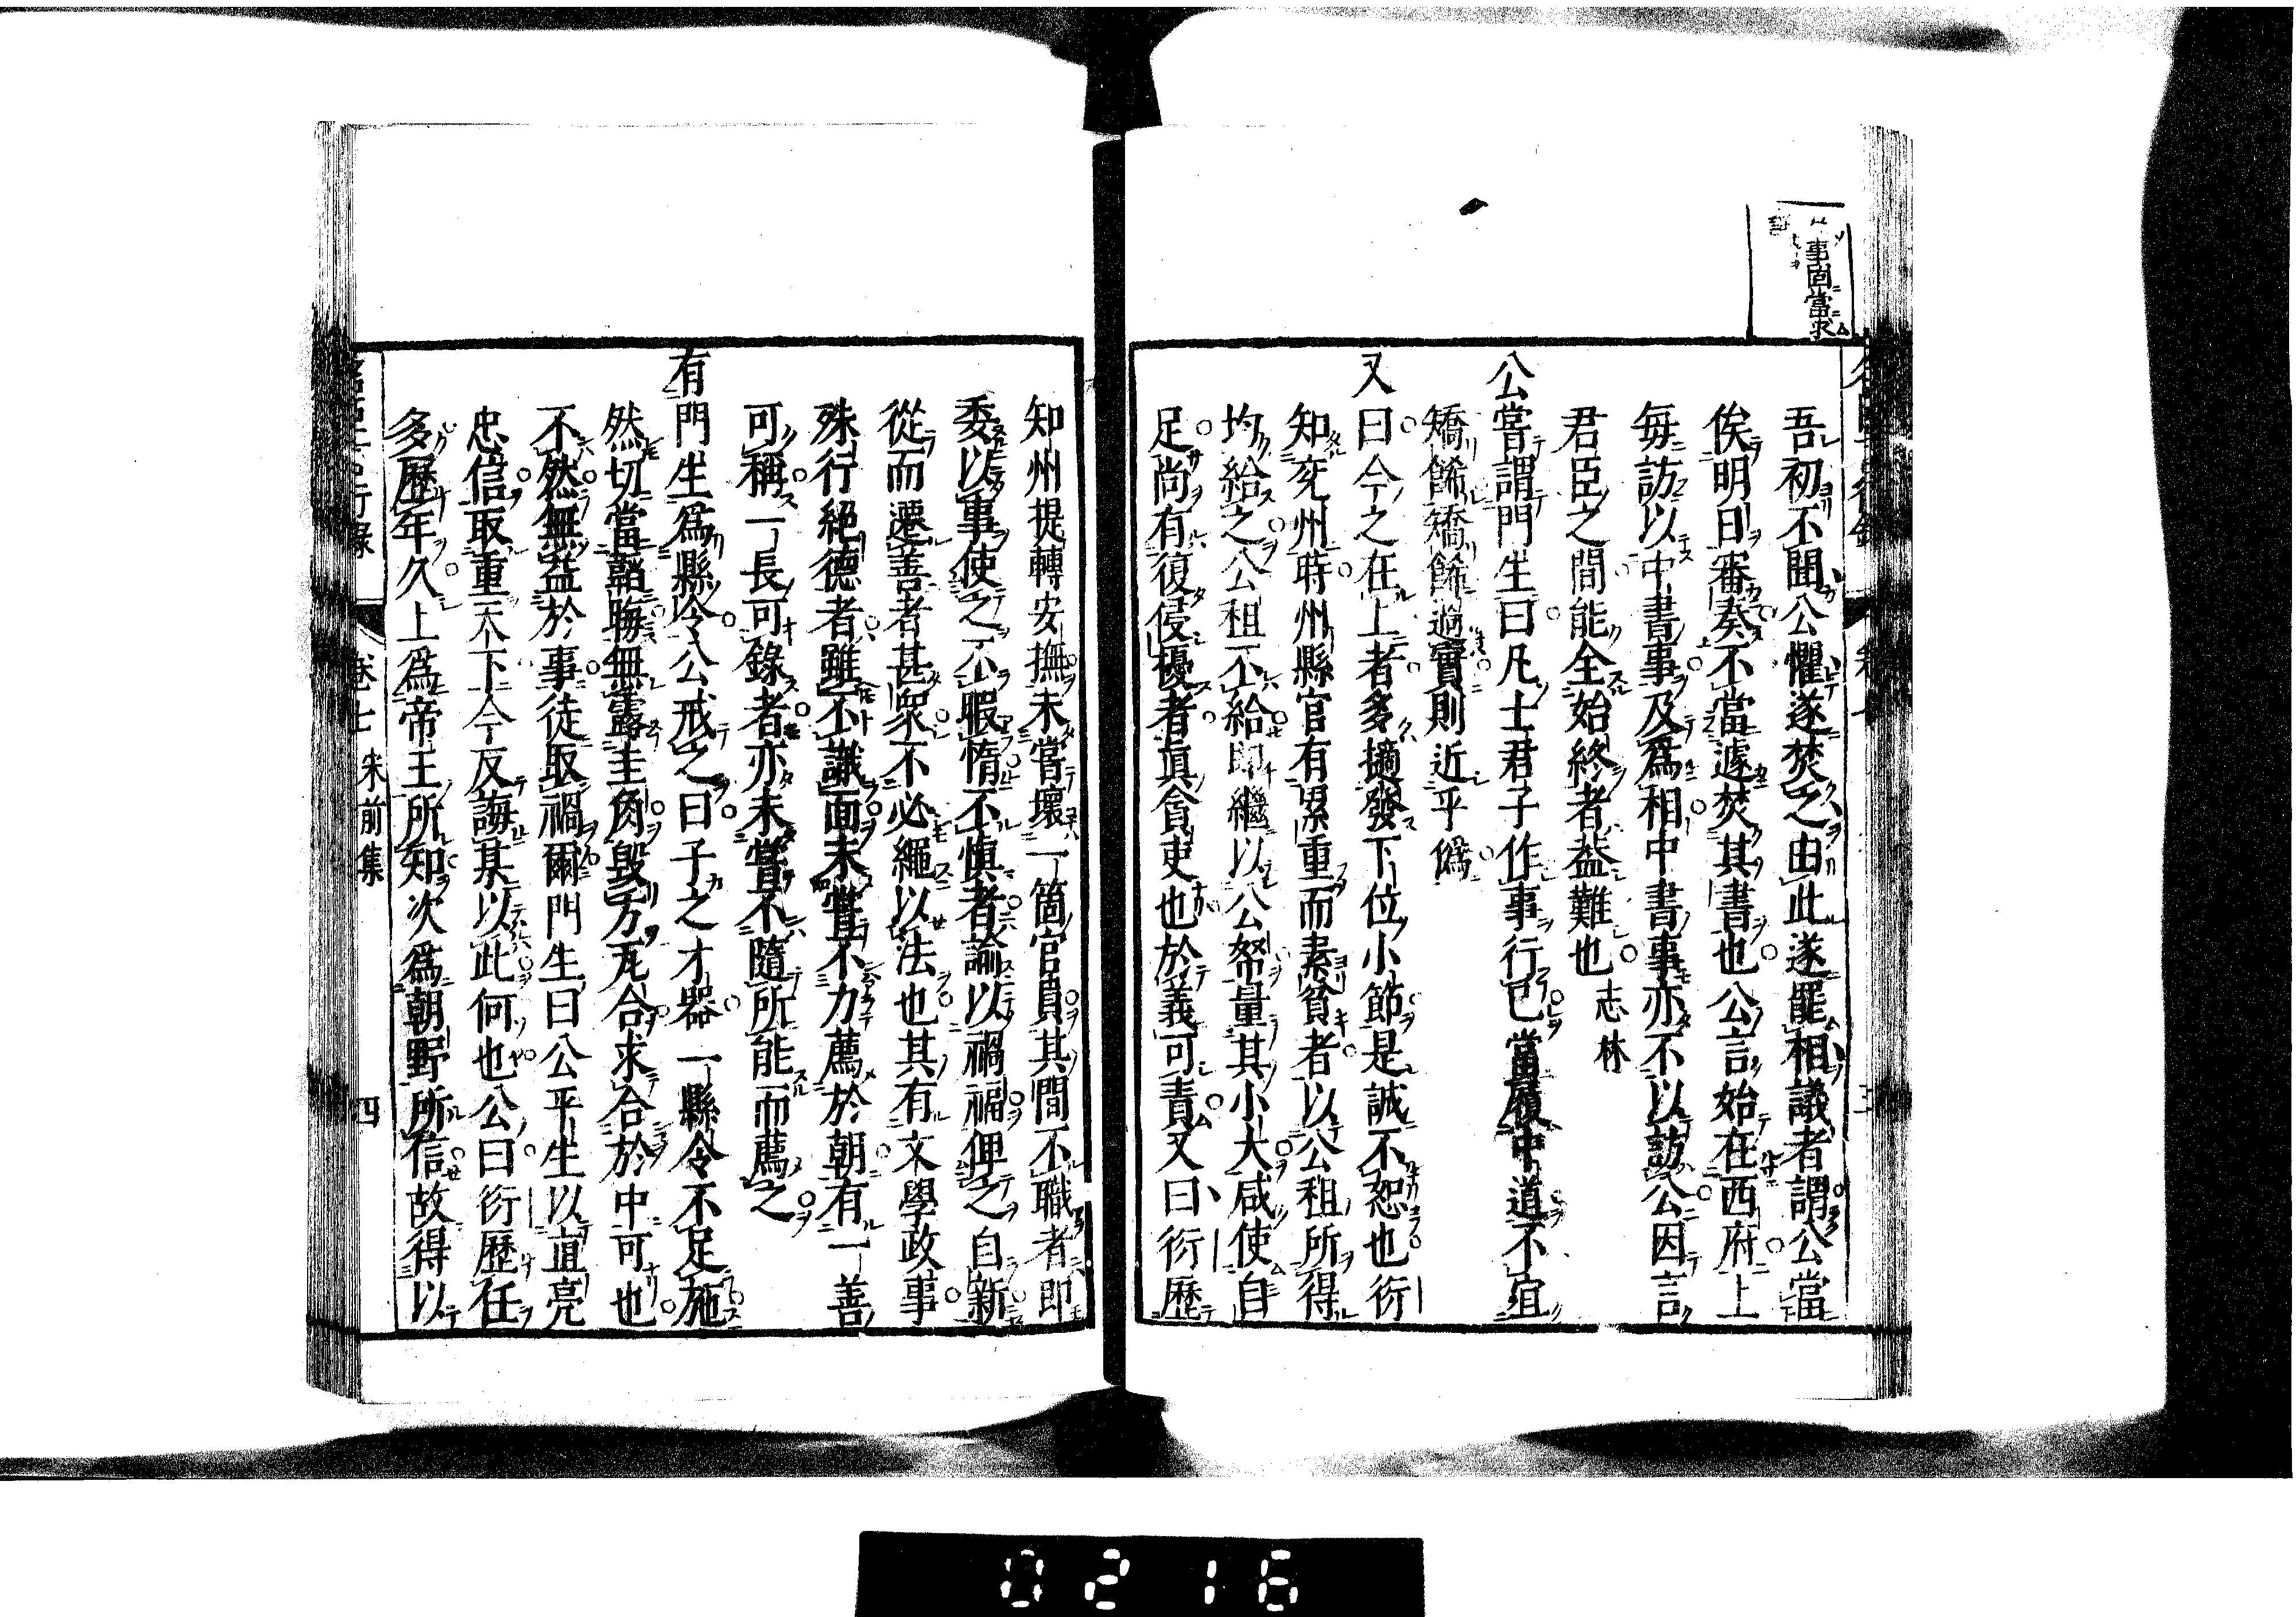 事固當求
吾初不聞公懼遂焚之由此遂罷相議者謂公當
俟明日審奏不當遽焚其書也公言始在西府上
每訪以中書事及爲相中書事亦不以訪公因言
君臣之間能全始終者蓋難也志林
公嘗謂門生曰凡士君子作事行已當履中道不宜
矯餙矯餙過實則近乎僞
又曰今之在上者多擿發下位小節是誠不恕也衍
知兗州時州縣官有累重而素貧者以公租所得
均給之公租不給即繼以公帑量其小大咸使自
足尚有復侵擾者眞貪吏也於義可責又曰衍歷
知州提轉安撫未嘗壞一箇官員其間不職者即
委以事使之不暇惰不愼者諭以禍福俾之自新
從而遷善者甚衆不必繩以法也其有文學政事
殊行絕德者雖不識面未嘗不力薦於朝有一善
可稱一長可錄者亦未嘗不隨所能而薦之
有門生爲縣令公戒之曰子之才器一縣令不足施
然切當韜晦無露圭角毀方瓦合求合於中可也
不然無益於事徒取禍爾門生曰公平生以直亮
忠信取重天下今反誨某以此何也公曰衍歷任
多歷年久上爲帝王所知次爲朝野所信故得以
卷七 宋前集 四
0216